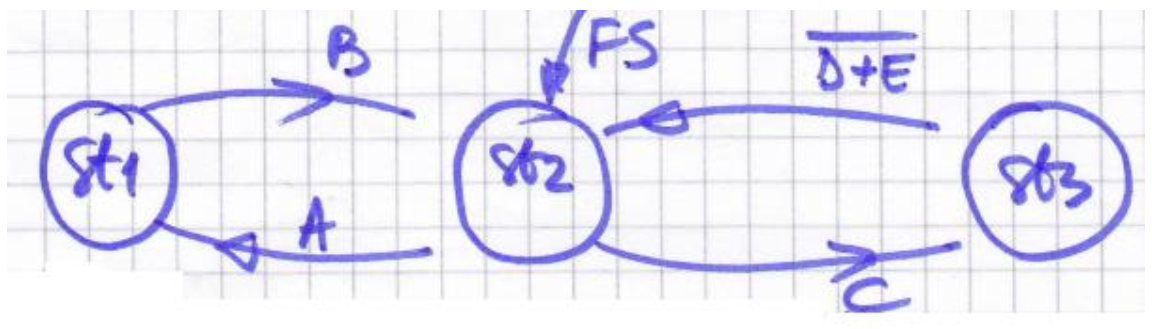 B
FS
D+E
st1
st2
st3
A
C